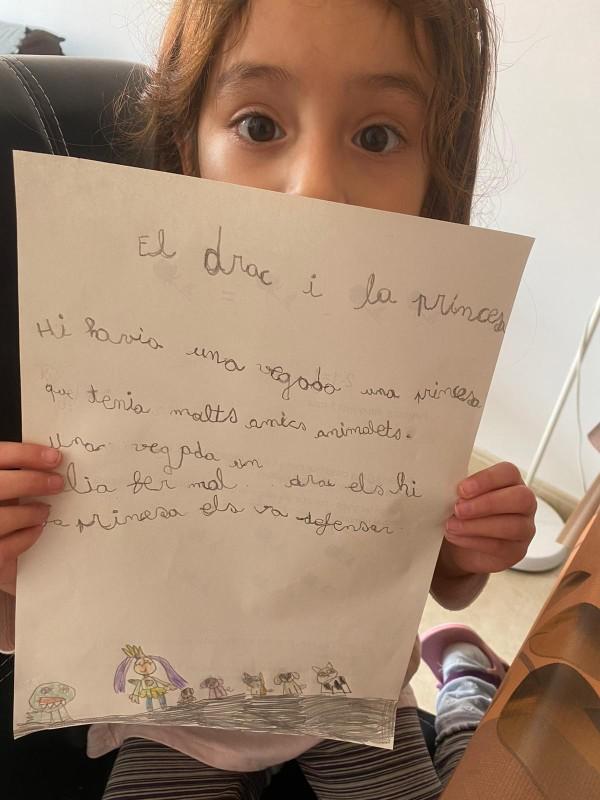 El drac i la princesa
Hi havia una vegada una princesa
que tenia molts amics animalets.
una vegada un
lia fer mal. drac els hi
sa princesa els va defensar.